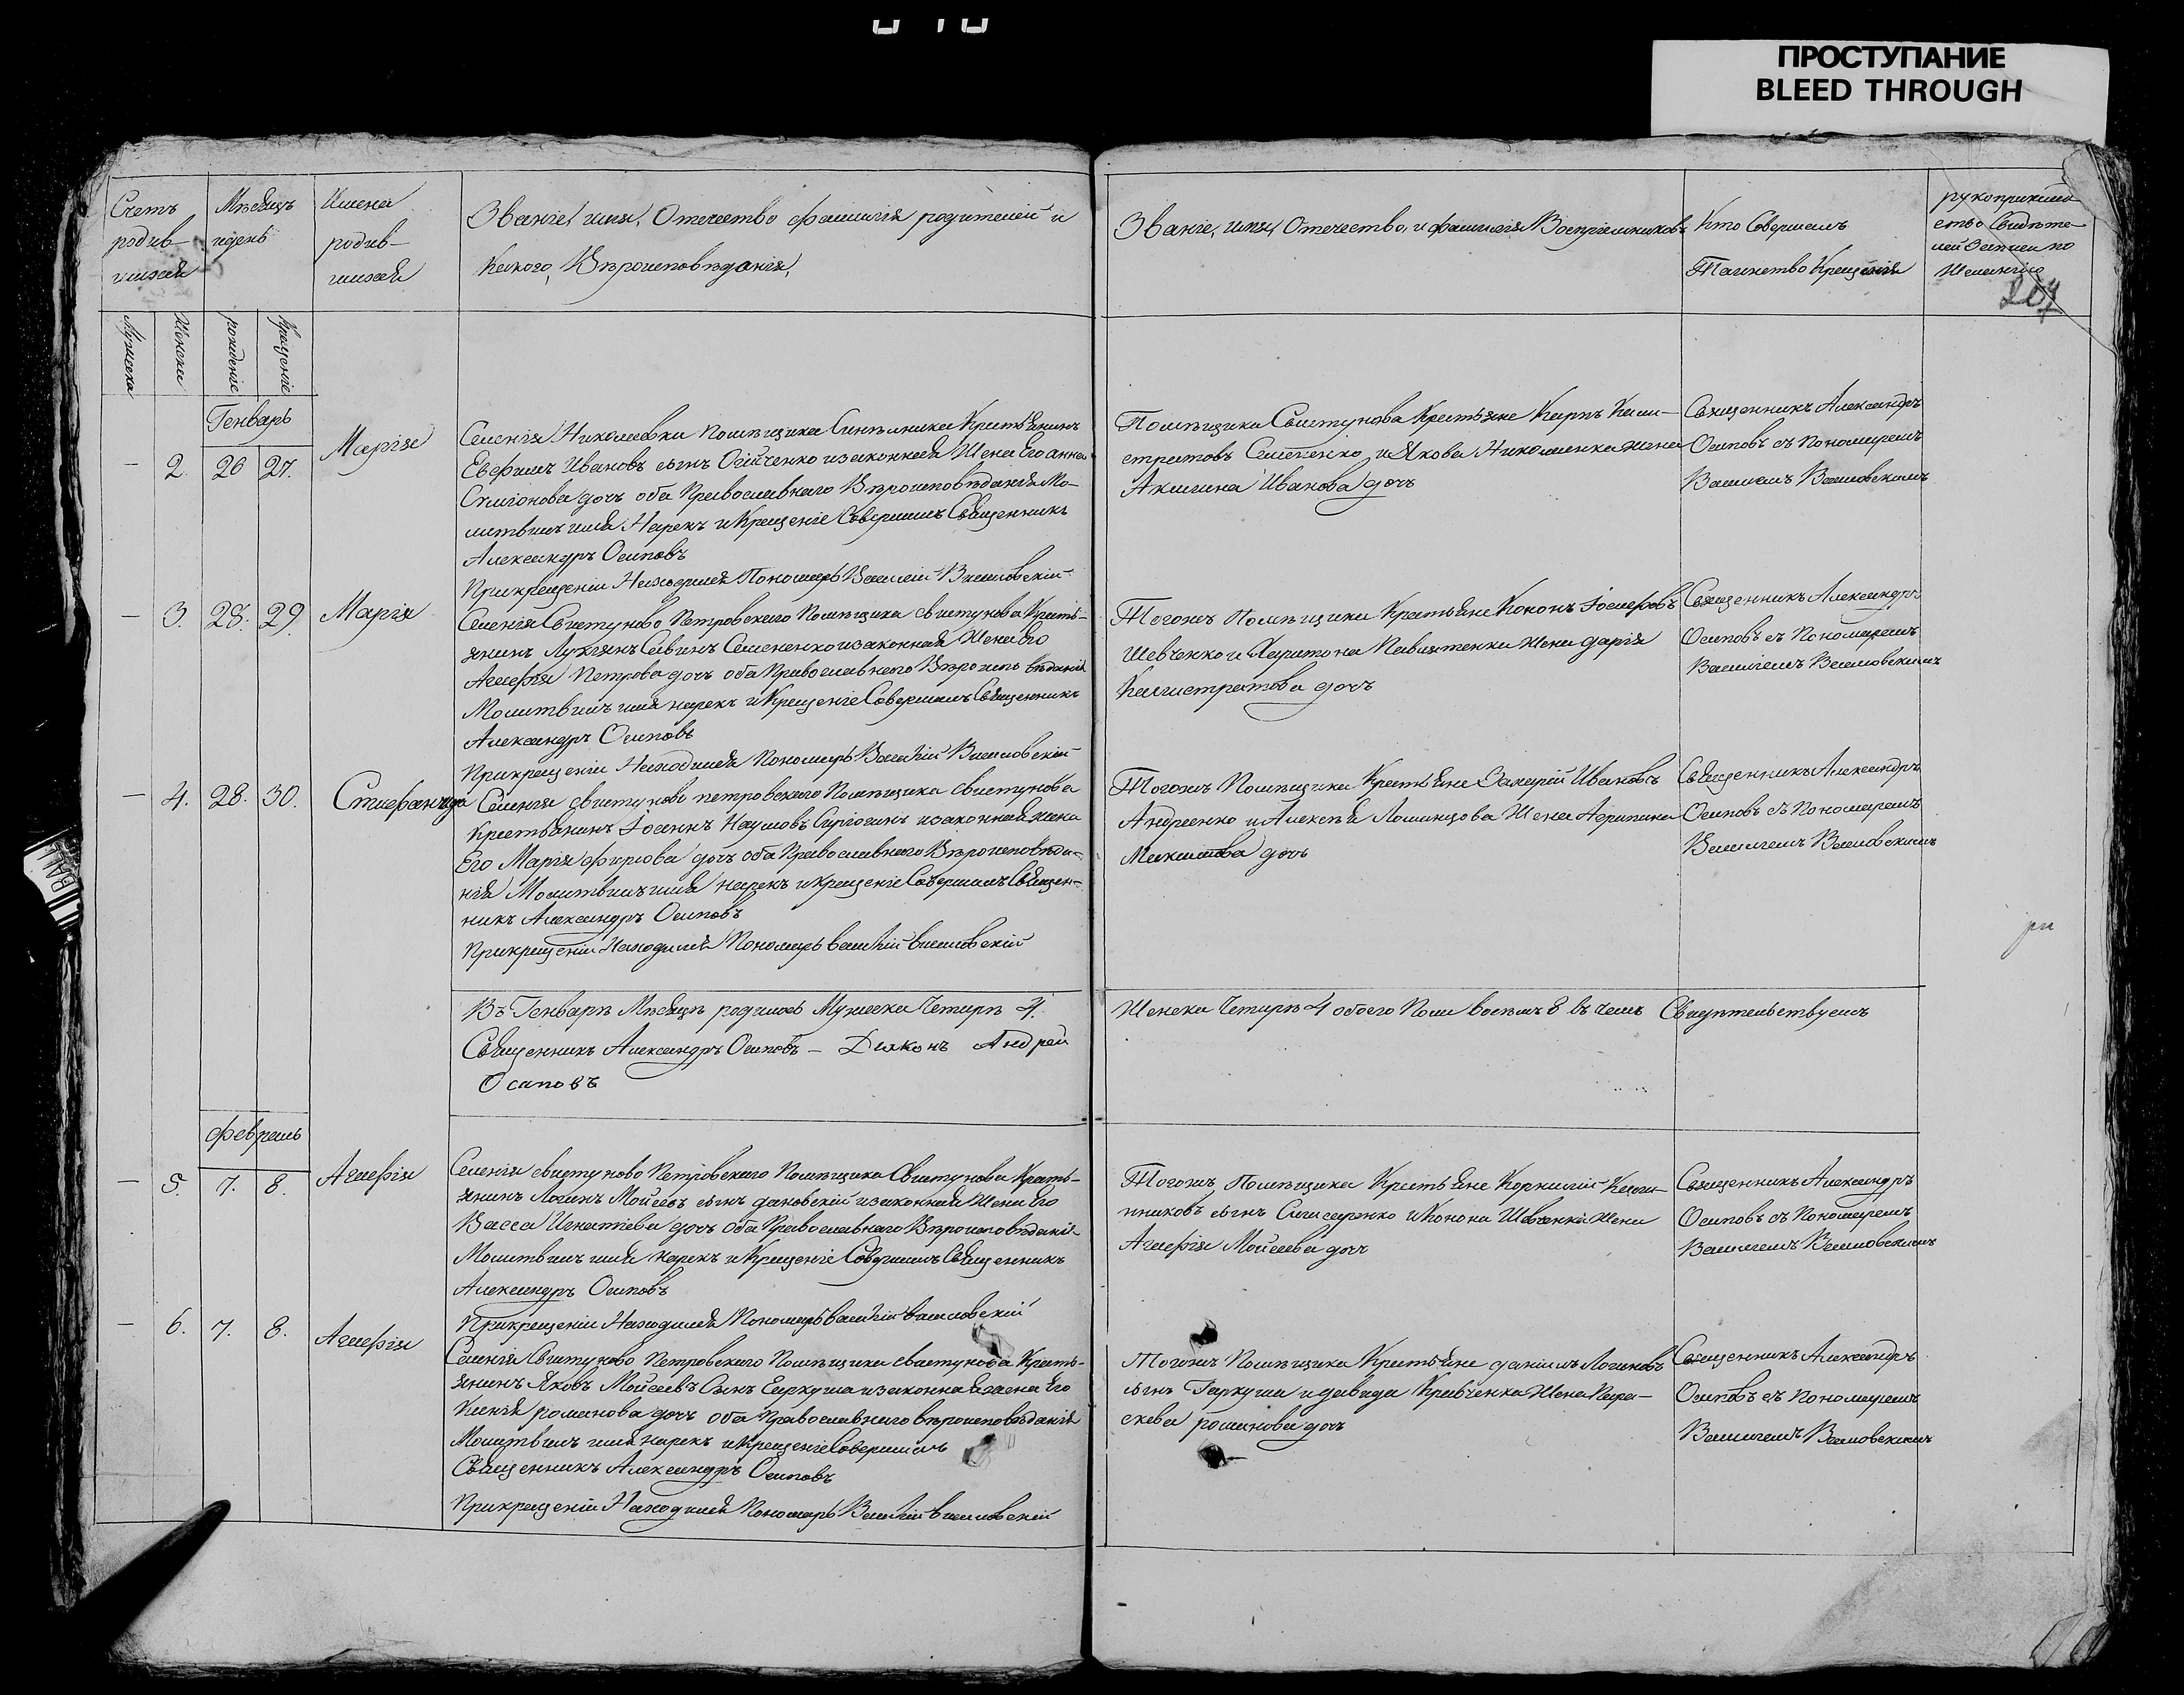 ПРОСТУПАНИЕ
BLEED THROUGH
Счетъ
родив-
шихся
Мѣсяцъ
и день
Имена
родив-
шихся
Званіе, имя, Отечество фамилія родителей и
Какого, Вѣроисповѣданія,
Званіе, имя, Отечество, и фамилія Воспріемниковъ
Кто Совершалъ
Таинство Крещенія
рукоприкла-
ство Свидѣте-
лей Записи по
Желанію
207
Мужеска
Женска
рожденіе
Крещеніе
Генварь
— 2. 26 27. Марія
Селенія Николаевки помѣщика Синельника Крестьянинъ
Евфимъ Ивановъ сынъ изаконная Жена Его анна
дочь оба Православнаго Вѣроисповѣданія Мо-
литвилъ имя Нарекъ и Крещеніе Совершилъ Священникъ
Александръ Осиповъ
Прикрещеніи Находился Пономарь Василій
Помѣщика Свистунова Крестьяне Карпъ Кали-
стратовъ и Якова Николаенка жена
Акилина Иванова дочь
Священникъ Александръ
Осиповъ съ пономаремъ
— 3. 28. 29. Марія
Селенія Свистуново Петровскаго Помѣщика свистунова Кресть-
янинъ Лукіянъ Савинъ Семененко изаконная Жена Его
Агафія Петрова дочь оба Православнаго Вѣроисповѣданія
Молитвилъ имя нарекъ и Крещеніе Совершилъ Священникъ
Александръ Осиповъ
Прикрещеніи Находился Пономарь Василій
Тогожъ Помѣщика Крестьяне Кононъ Іосифовъ
Шевченко и Харитона жена дарія
Калистратова дочь
Священникъ Александръ
Осиповъ съ Пономаремъ
— 4. 28. 30. Стефанида
Селенія свистуново петровскаго Помѣщика свистунова
Крестьянинъ Наумовъ изаконная жена
Его Марія Фирсова дочь оба Православнаго Вѣроисповѣда-
нія Молитвилъ имя нарекъ и крещеніе Совершилъ Священ-
никъ Александръ Осиповъ
Прикрещеніи Находился Пономарь василій
Тогожъ Помѣщика Крестьяне Захарій Ивановъ
Андреенко и Алексѣя Жена Агрипина
дочь
Священникъ Александръ
Осиповъ съ Пономаремъ
Въ Генварѣ Мѣсяцѣ родилось Мужеска Четыре 4.
Женска Четыре 4 обоего Пола восемь 8 въ чемъ Свидѣтельствуемъ
Священникъ Александръ Осиповъ — Діяконъ Андрей
Осиповъ
февраль
— 5. 7. 8. Агафія
Селенія свистуново Петровскаго Помѣщика Свистунова Кресть-
янинъ Логинъ Мойсеевъ сынъ изаконная Жена Его
Васса Игнатіева дочь Оба Православнаго Вѣроисповѣданія
Молитвилъ имя нарекъ и Крещеніе Совершилъ Священникъ
Александръ Осиповъ
Прикрещеніи Находился Пономарь василій
Тогожъ Помѣщика Крестьяне Корнилій
сынъ и Конона Шевченка жена
Агафія Мойсеева дочь
Священникъ Александръ
Осиповъ съ Пономаремъ
— 6. 7. 8. Агафія
Селенія Свистуново Петровскаго Помѣщика свистунова Кресть-
янинъ Яковъ Мойсеевъ Сынъ изаконная жена Его
Ксенія романова дочь оба Православнаго вѣроисповѣданія
Молитвилъ имя нарекъ и Крещеніе Совершилъ
Священникъ Александръ Осиповъ
Прикрещеніи Находился Пономарь Василій
Тогожъ Помѣщика Крестьяне даніилъ Логиновъ
сынъ Гаркуша и давида Кравченка Жена Пара-
скева романова дочь
Священникъ Александръ
Осиповъ съ Пономаремъ